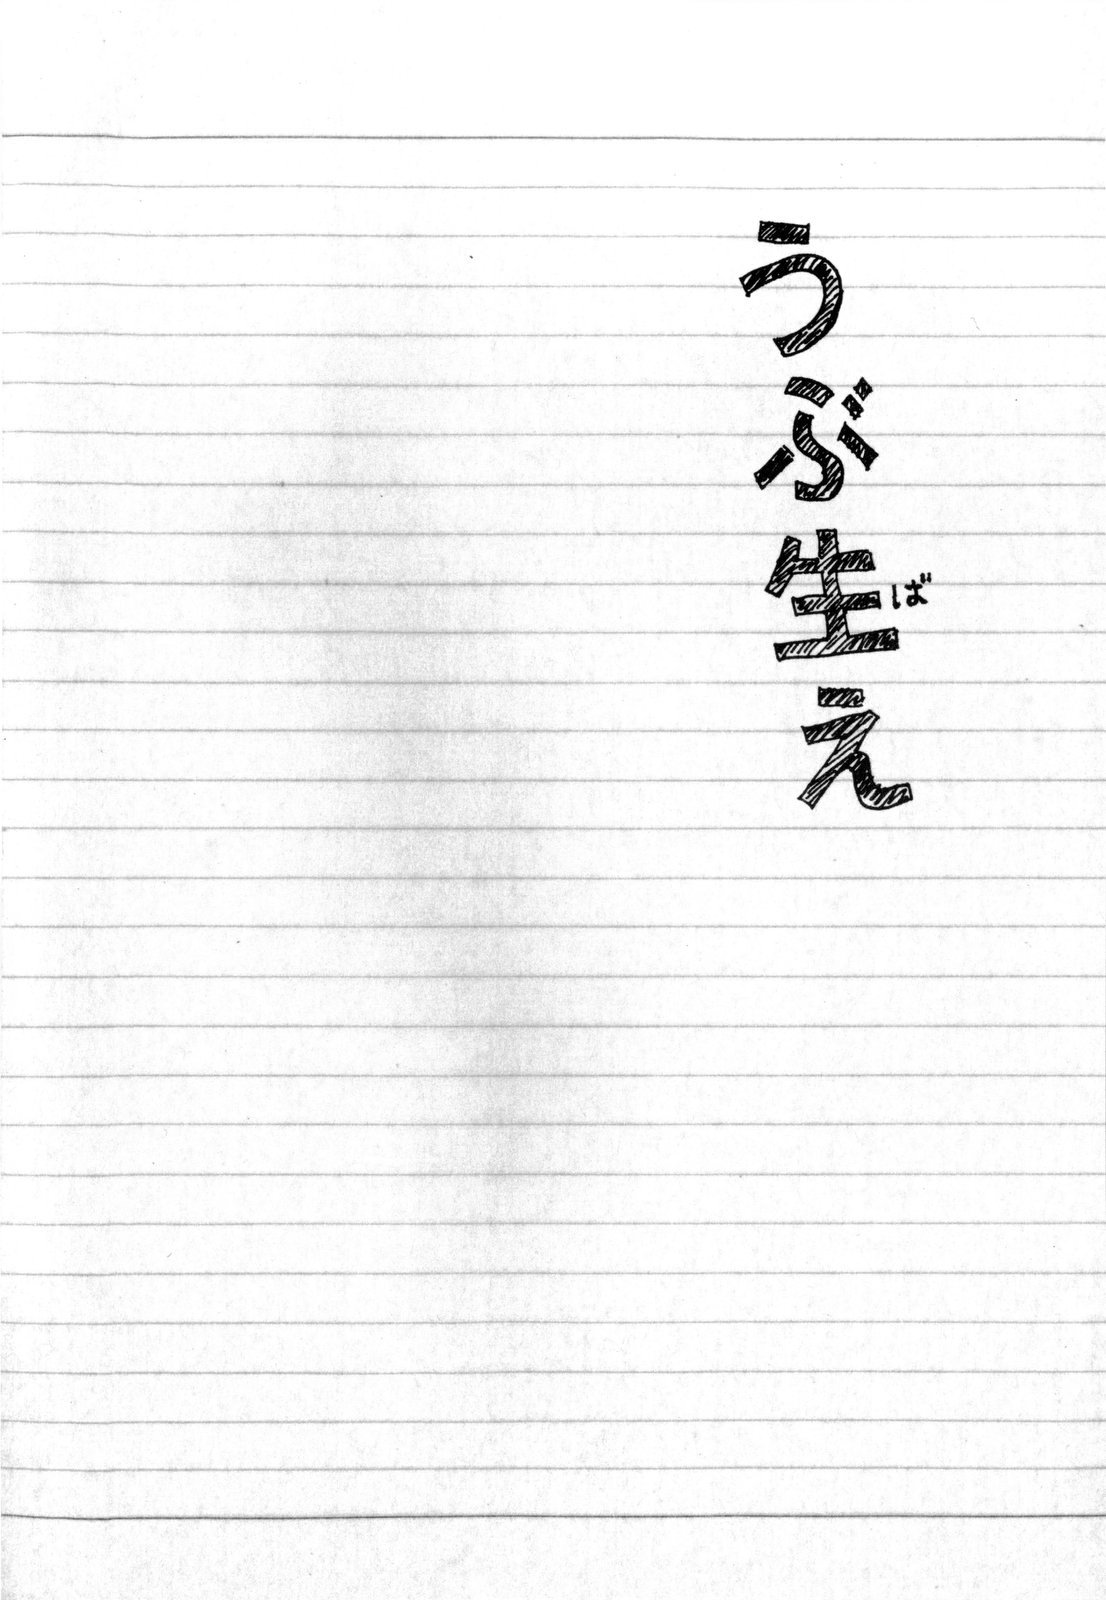 うぶ生え
ば